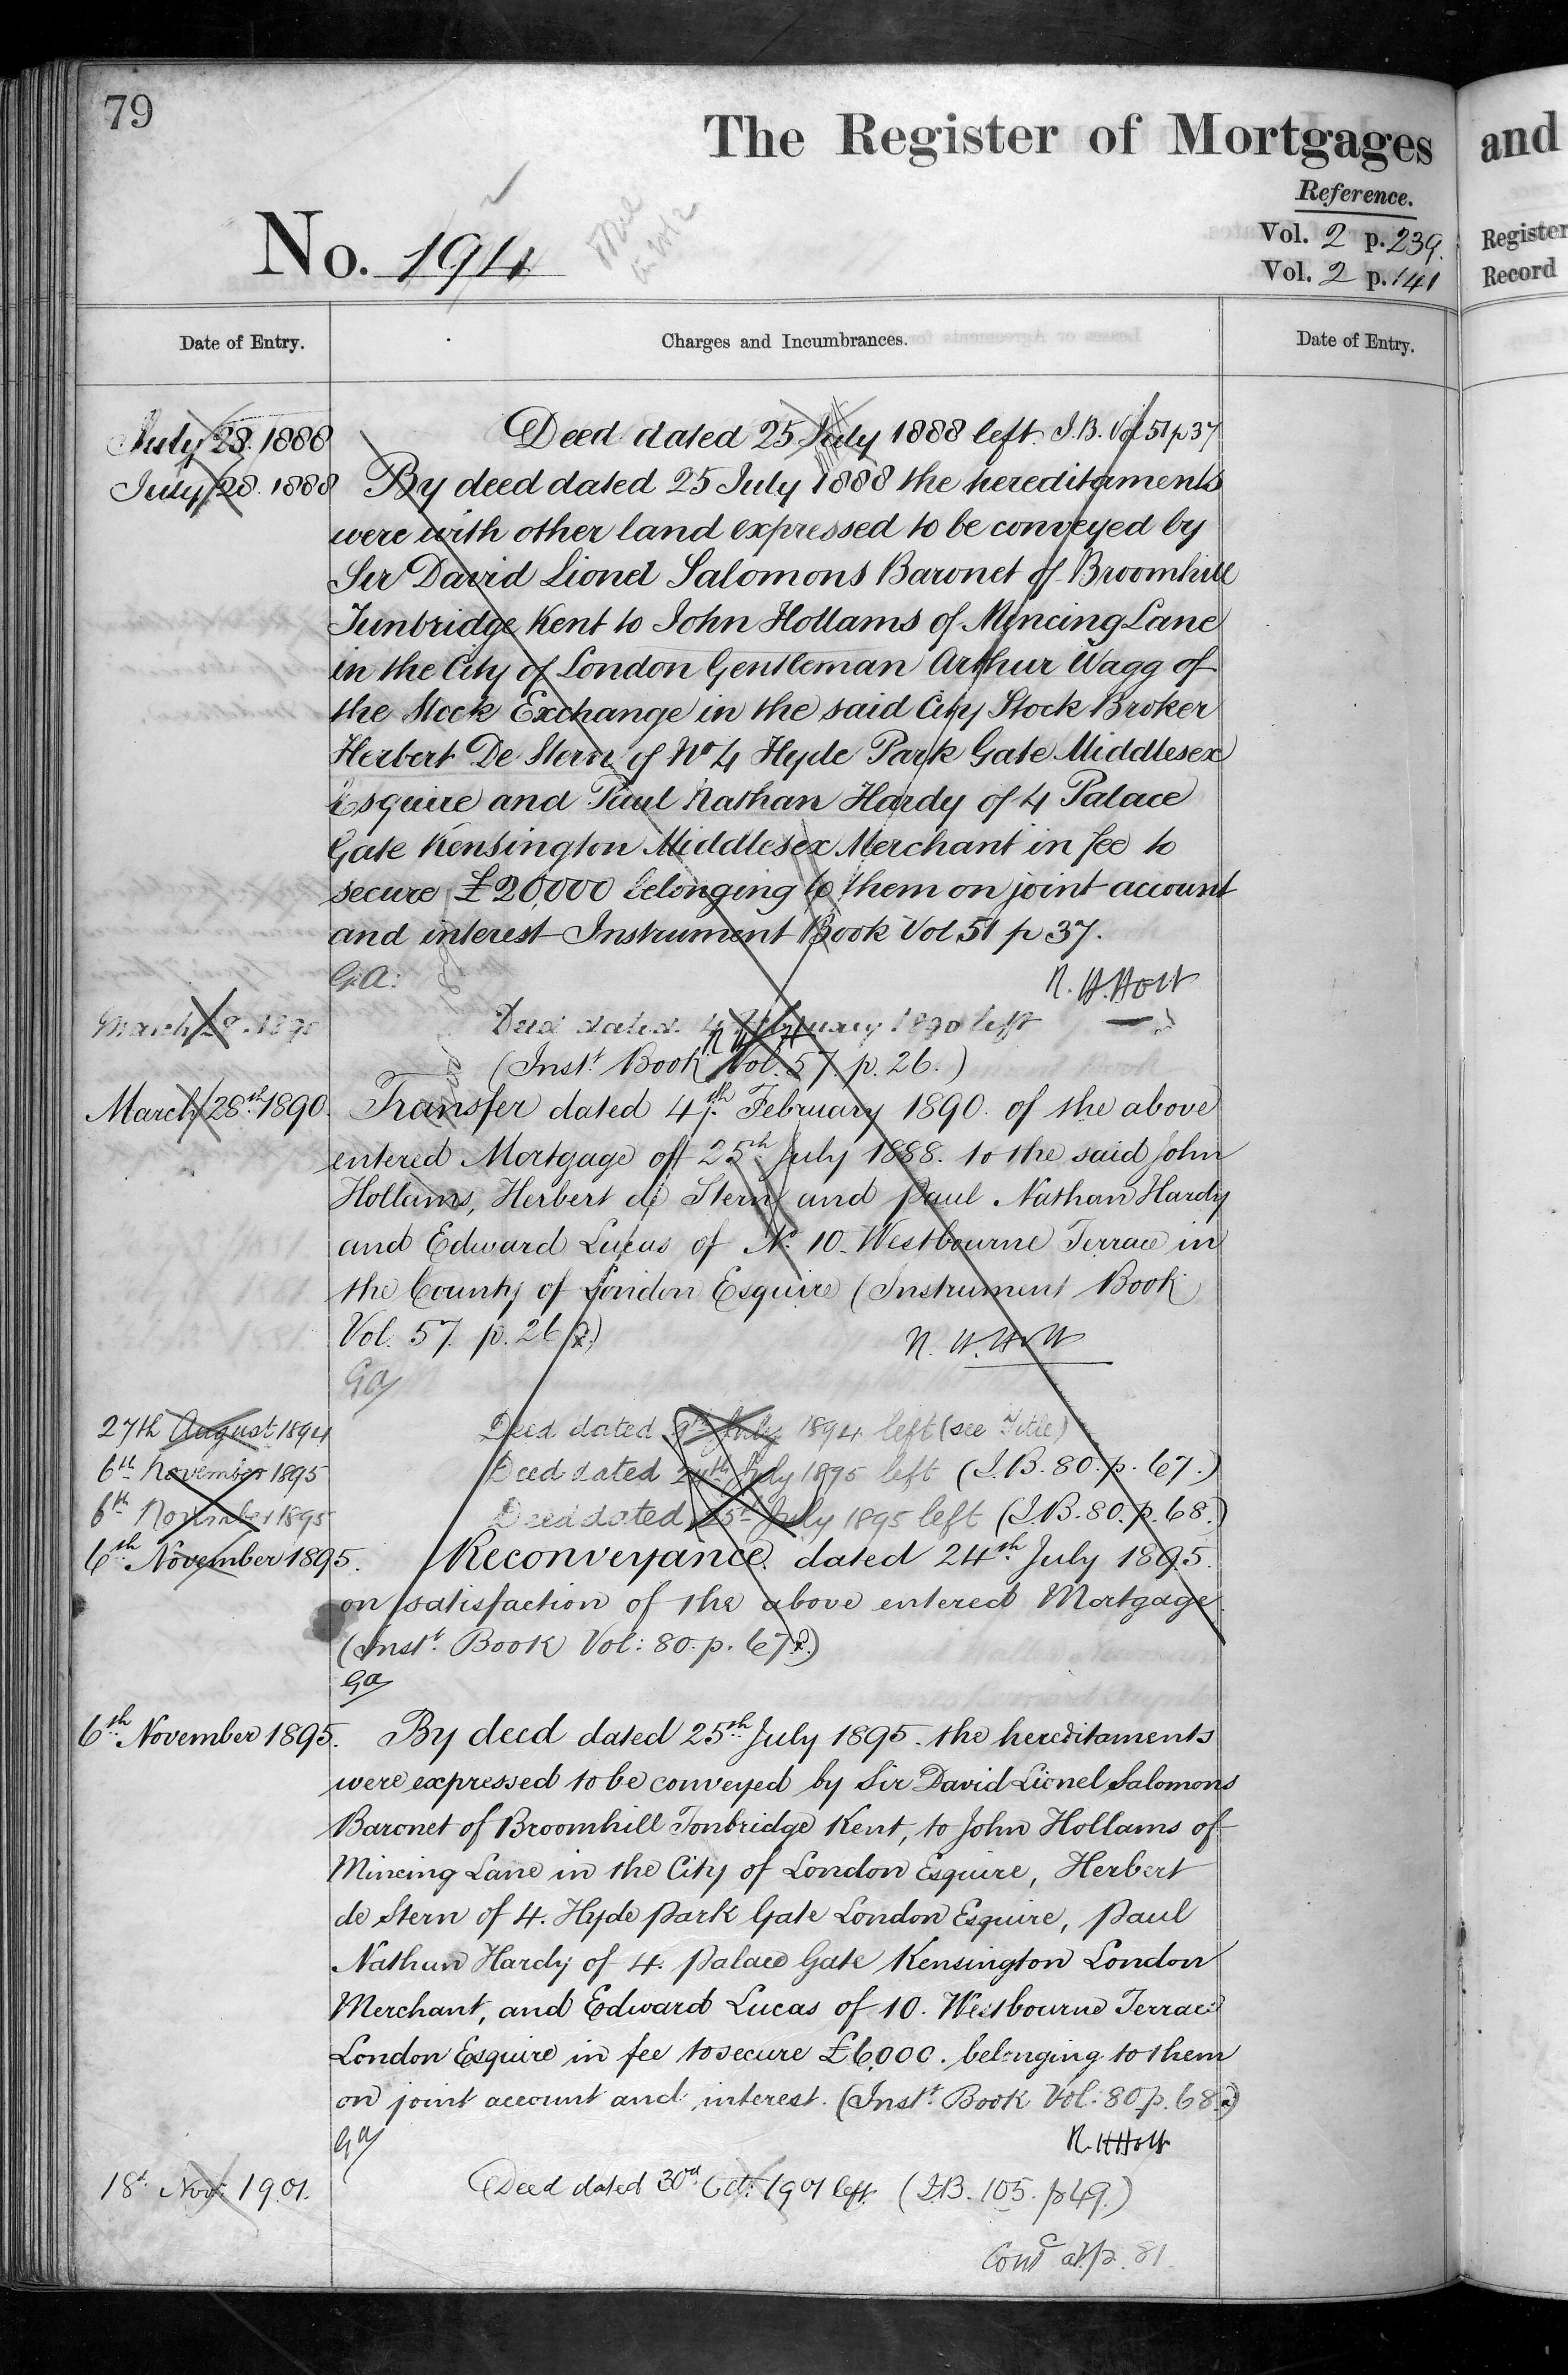 79
The Register of Mortgages
and
Reference.
No. 1914
Vol. 2 p. 239.
Vol. 2 p. 141
Register
Record
Date of Entry.
Charges and Incumbrances.
Date of Entry.
July 28. 1888 Deed dated 25 July 1888 left. I.B. Vol 51 p 37
July 28. 1888 By deed dated 25 July 1888 the hereditaments
were with other land expressed to be conveyed by
Sir David Lionel Salomons Baronet of Broomhill
Tunbridge Kent to John Hollams of Mincing Lane
in the City of London Gentleman Arthur Wagg of
the Stock Exchange in the said City Stock Broker
Herbert De Stern of No 4 Hyde Park Gate Middlesex
Esquire and Paul Nathan Hardy of 4 Palace
Gate Kensington Middlesex Merchant in fee to
secure £20,000 belonging to them on joint account
and interest Instrument Book Vol 51 p 37.
G.A. N. H. Holt
March 28. 1890 Deed dated 4 February 1890 left
(Inst. Book Vol. 57. p. 26.)
March 28th 1890. Transfer dated 4th February 1890. of the above
entered Mortgage of 25th July 1888. to the said John
Hollams, Herbert de Stern and Paul Nathan Hardy
and Edward Lucas of No. 10. Westbourne Terrace in
the County of London Esquire (Instrument Book
Vol. 57. p. 26.)
N. H. Holt
Ga
27th August 1894 Deed dated 9th July 1894 left (see Title)
6th November 1895 Deed dated 24th July 1895 left (I.B. 80. p. 67.)
6th November 1895 Deed dated 25th July 1895 left (I.B. 80. p. 68.)
6th November 1895. Reconveyance dated 24th July 1895.
on satisfaction of the above entered Mortgage.
(Inst. Book Vol: 80. p. 67.)
Ga
6th November 1895. By deed dated 25th July 1895. the hereditaments
were expressed to be conveyed by Sir David Lionel Salomons
Baronet of Broomhill Tonbridge Kent, to John Hollams of
Mincing Lane in the City of London Esquire, Herbert
de Stern of 4. Hyde Park Gate London Esquire, Paul
Nathan Hardy of 4. Palace Gate Kensington London
Merchant, and Edward Lucas of 10. Westbourne Terrace
London Esquire in fee to secure £6,000. belonging to them
on joint account and interest. (Inst. Book Vol: 80. p. 68.)
Ga N. H Holt
18th Nov: 1901. Deed dated 30th Oct: 1901 left. (I.B. 105. p 49.)
Contd at p. 81.